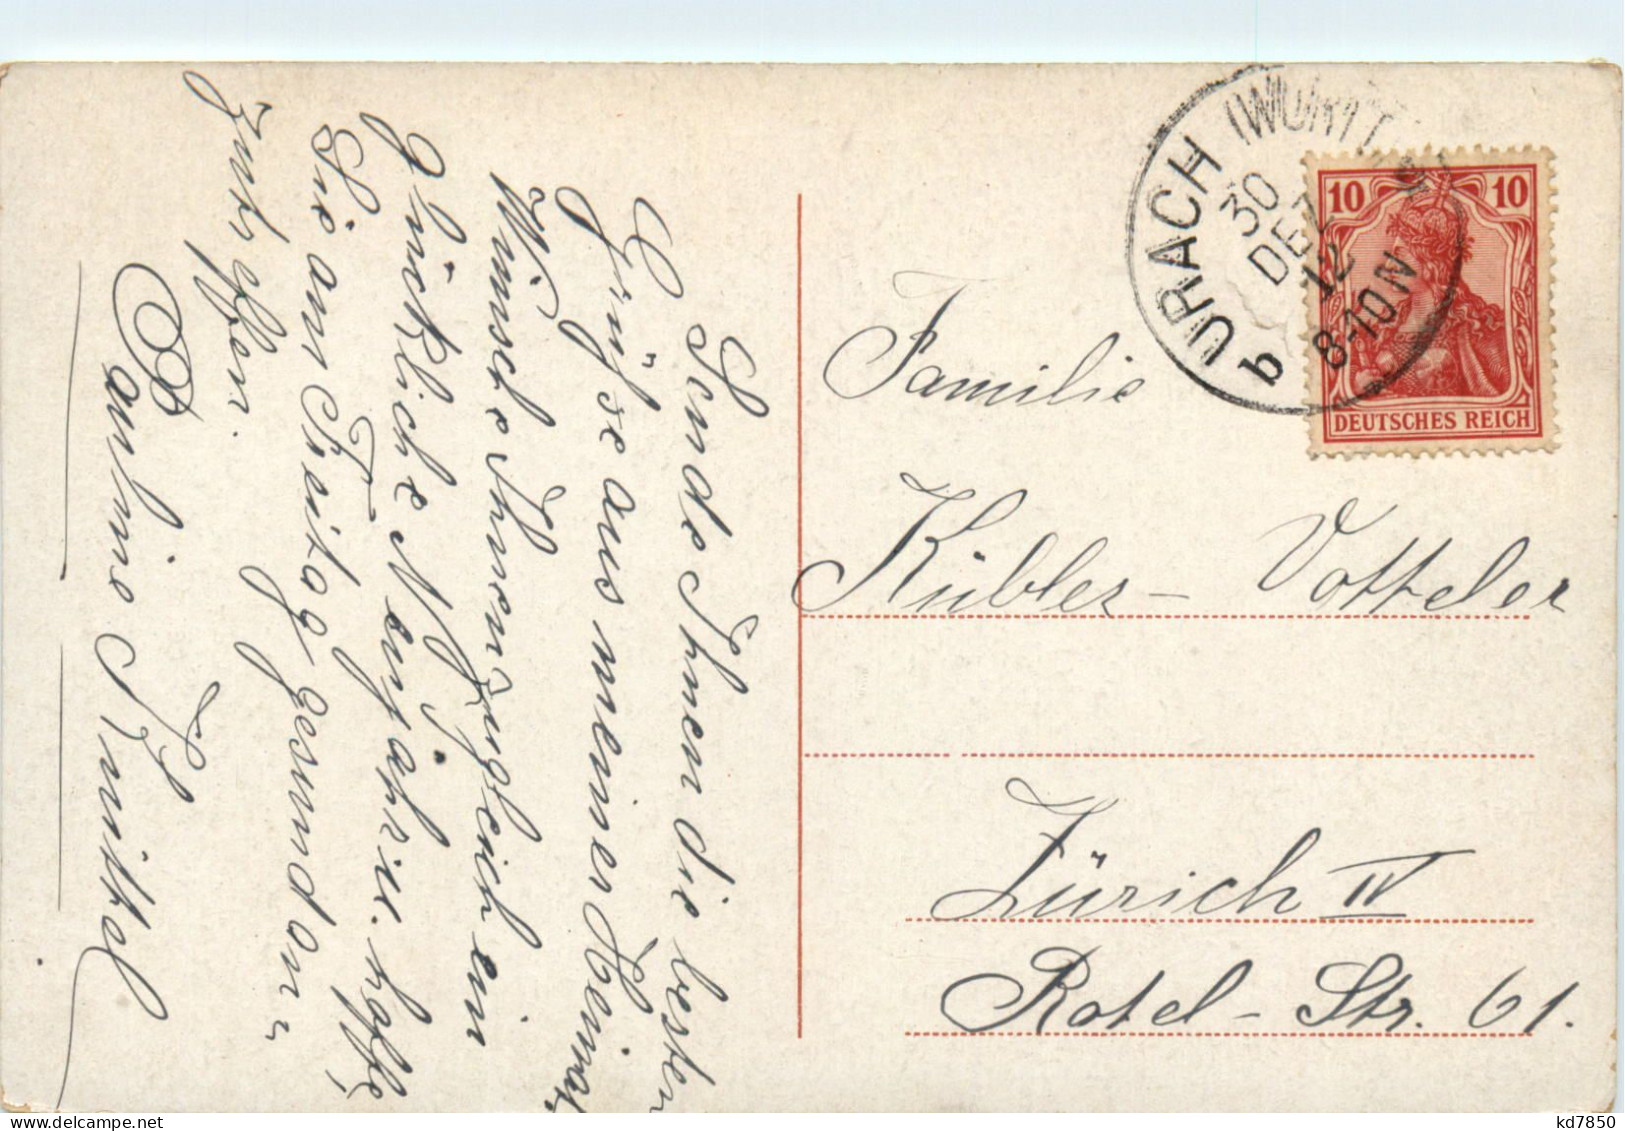 Sende Ihnen die besten
Grüße aus meiner Heimat,
Wünsche Ihnen zugleich ein
glückliche Neujahre. hoffe
Sie am Freitag gesund an-
zutreffen.
Pauline Knittel
URACH (WÜRTT.)
30
DEZ
12
8-10 N
b
10 10
DEUTSCHES REICH
Familie
Kübler - Votteler
Zürich IV
Rotel - Str. 61.
kd7850